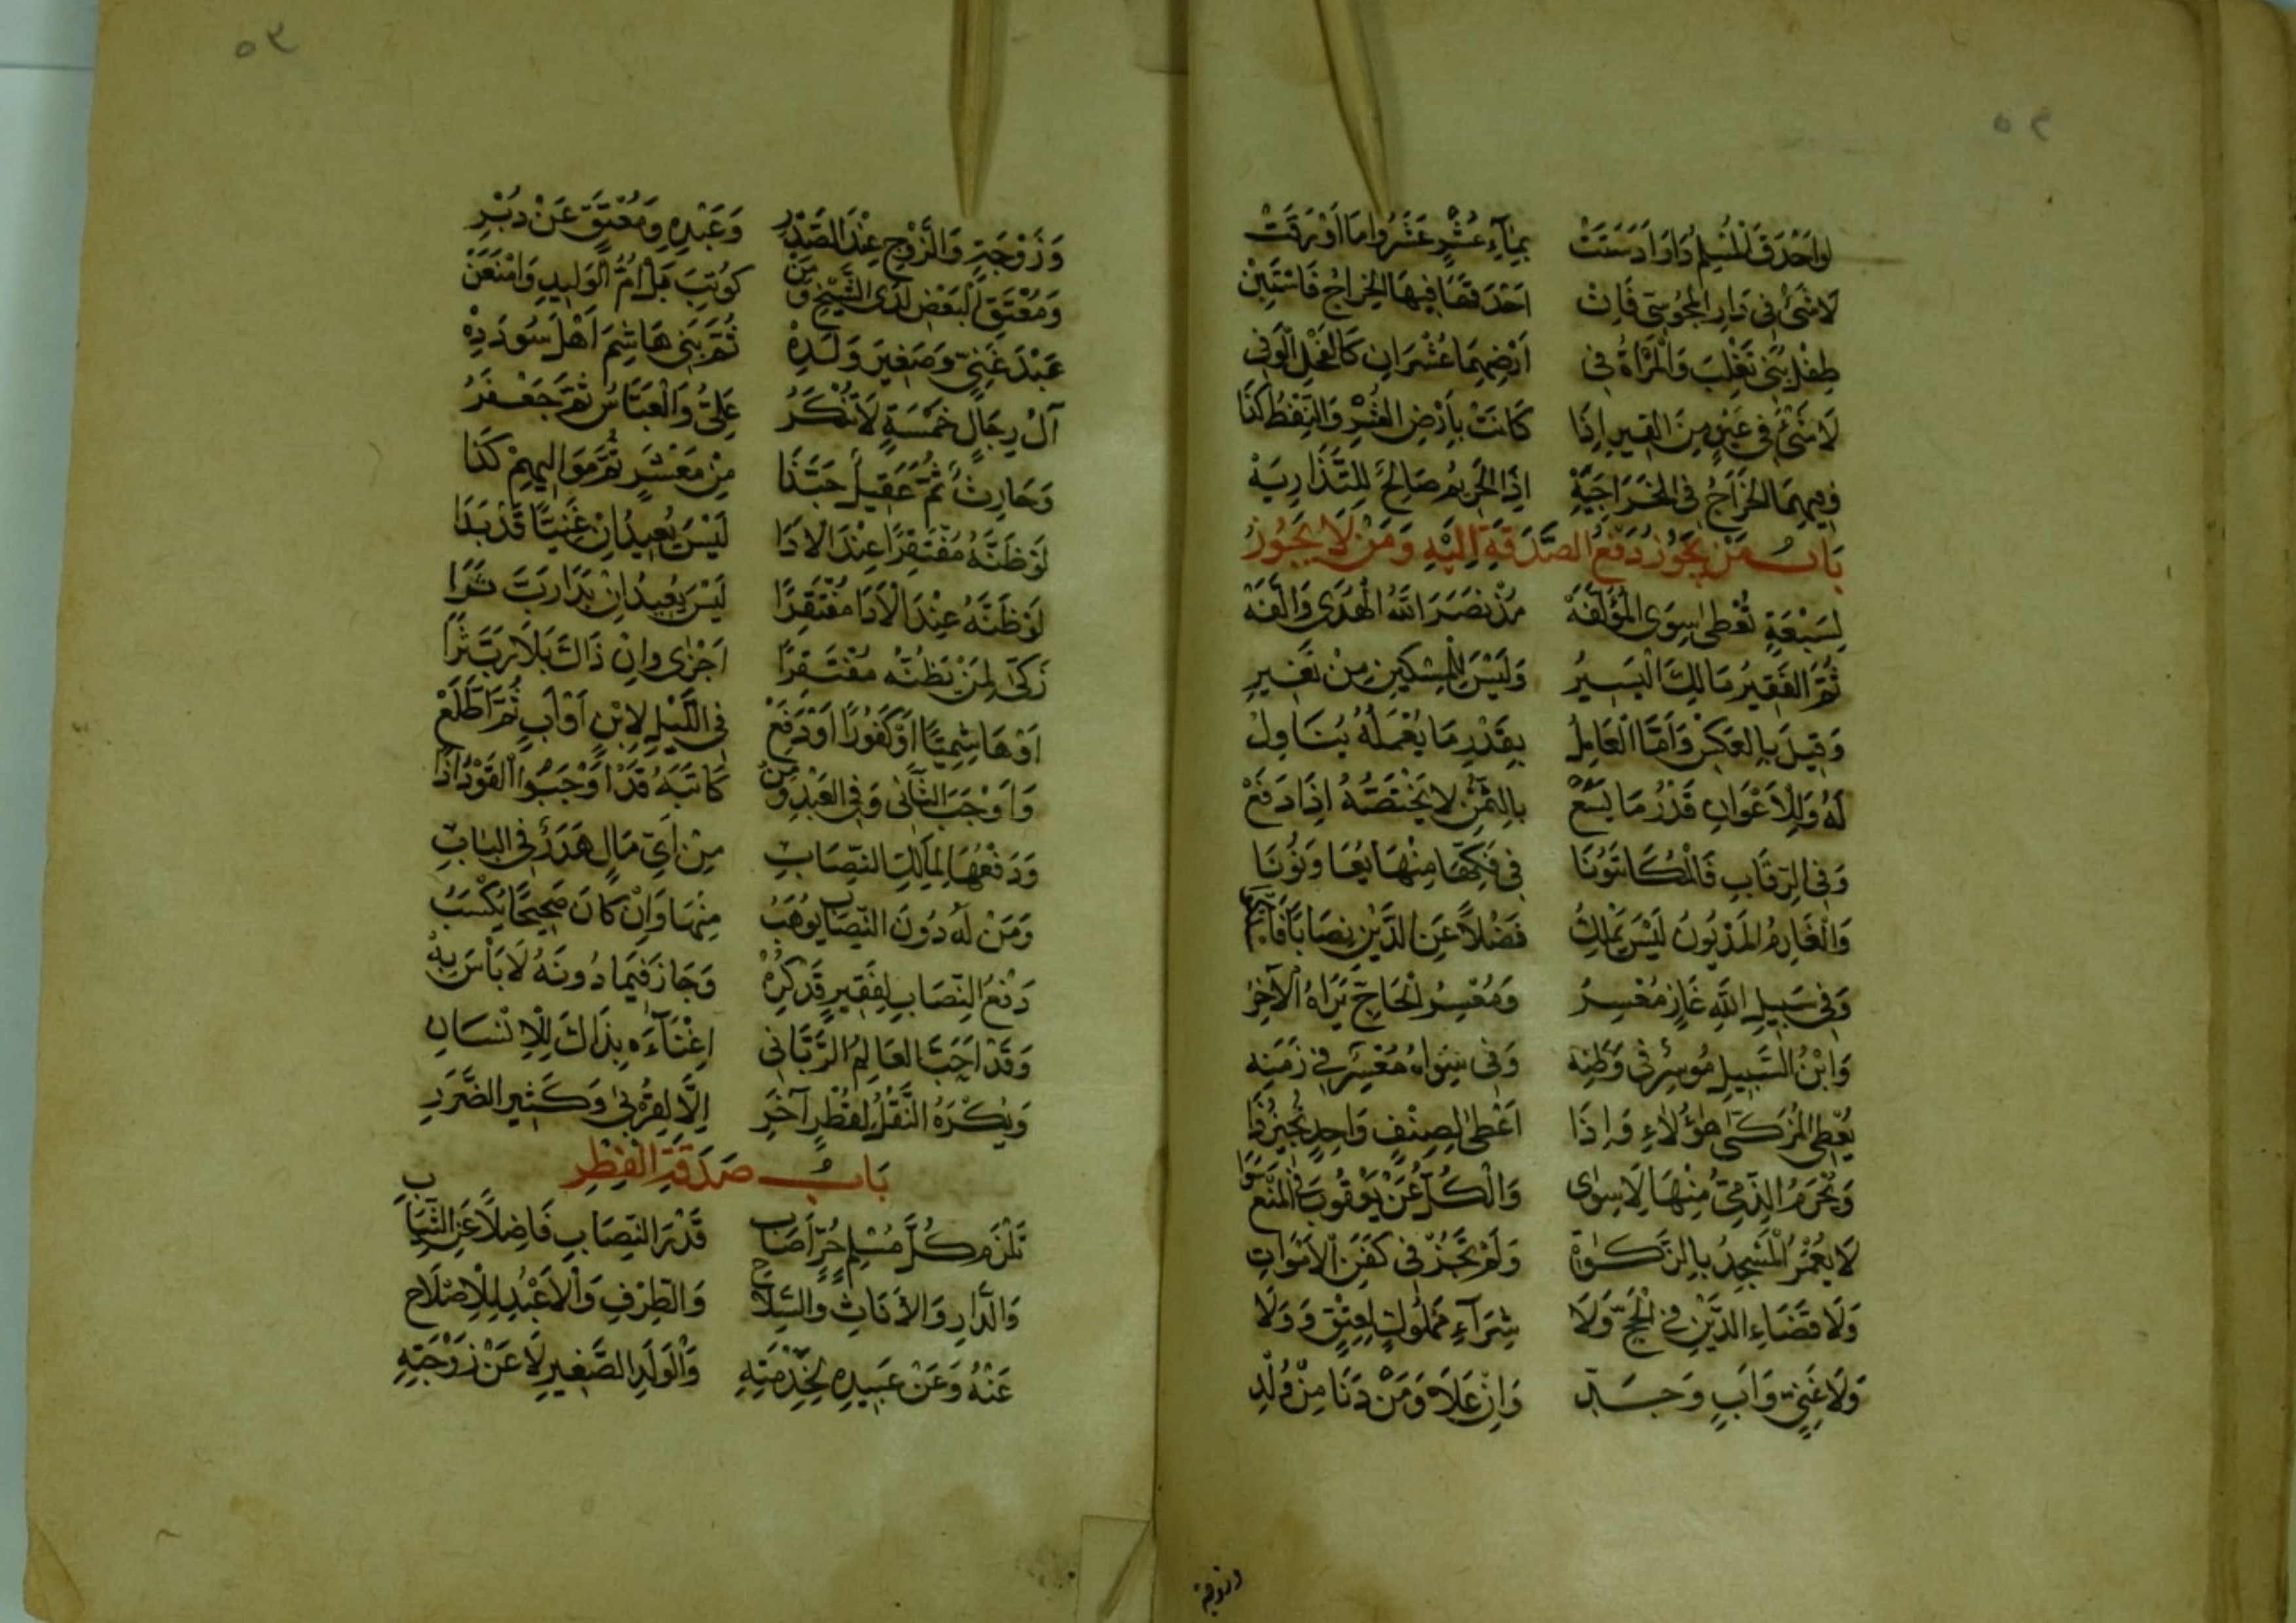 ٥٢
لواحدق المسلم دارا دسقت بماء عشر عشروا ما اورقت
لَا شَئَ فِي دَارِ الْمَجُوسِي فَإِنْ احْدَقَهَا فِيهَا الْخِرَاجُ فَاسْتَبِنْ
طِفْلُ بَنِي تَغْلِبَ وَالْمَرْأَةُ فِي اَرْضِهِمَا عُشْرَانِ كَالْفَحْلِ الْوَفِي
لَا شَئَ فِي عَيْنٍ مِنَ الْقِيرِ إِذَا كَانَتْ بِأَرْضِ الْعُشْرِ وَالنِّفْطُ كَذَا
وَفِيهِمَا الْخَرَاجُ فِي الْخَرَاجِيَّةِ اِذَا الْحَرِيمُ صَالِحٌ لِلتَّذَارِيَهْ
بَابُ مَنْ يَجُوزُ دَفْعُ الصَّدَقَةِ اِلَيْهِ وَمَنْ لَا يَجُوزُ
لِسَبْعَةٍ تُعْطَى سِوَى الْمُؤَلَّفَهْ مُذْ نَصَرَ اللّٰهُ الْهُدَى وَاَلَّفَهْ
ثُمَّ الْفَقِيرُ مَالِكُ الْيَسِيرِ وَلَيْسَ لِلْمِسْكِينِ مِنْ نَقِيرِ
وَقِيلَ بِالْعَكْسِ وَاَمَّا الْعَامِلُ بِقَدْرِ مَا يَعْمَلُهُ يُنَاوِلُ
لَهُ وَلِلْاَعْوَانِ قَدْرُ مَا يَسَعْ بِالثُّمْنِ لَا يَخْتَصُّهُ اِذَا دَفَعْ
وَفِي الرِّقَابِ فَالْمُكَاتَبُونَا فِي فَكِّهَا مِنْهَا يُعَاوَنُونَا
وَالْغَارِمُ الْمَدْيُونُ لَيْسَ يَمْلِكُ فَضْلاً عَنِ الدَّيْنِ نِصَابًا
وَفِي سَبِيلِ اللّٰهِ غَازٍ مُعْسِرُ وَمُعْسِرُ الْحَاجِّ يَرَاهُ الْآخِرُ
وَابْنُ السَّبِيلِ مُوسِرٌ فِي وَطَنِهْ وَفِي سِوَاهُ مُعْسِرٌ فِي زَمَنِهْ
يُعْطِى الْمُزَكِّى هٰؤُلَاءِ وَاِذَا اَعْطَى لِصِنْفٍ وَاحِدٍ نُجِيزُ ذَا
وَنَحْرِمُ الذِّمِّيَّ مِنْهَا لَا سِوٰى وَالْكُلُّ عَنْ يَعْقُوبَ فِي الْمَنْعِ سَوَا
لَا يُعْمَرُ الْمَسْجِدُ بِالزَّكٰوةِ وَلَمْ تَجُزْ فِي كَفَنِ الْاَمْوَاتِ
وَلَا قَضَاءِ الدَّيْنِ فِي الْحَجِّ وَلَا شِرَآءِ مَمْلُوكٍ لِعِتْقٍ وَوَلَا
وَلَا غَنِيٍّ وَاَبٍ وَجَدِّ وَاِنْ عَلَا وَمَنْ دَنَا مِنْ وُلْدِ
وزوجة
٥٣
وَزَوْجَةٍ وَالزَّوْجِ عِنْدَ الصَّدْرِ وَعَبْدِهِ وَمُعْتَقٍ عَنْ دُبْرِ
وَمُعْتَقِ الْبَعْضِ لَدَى الشَّيْخِ وَمَنْ كُوتِبَ بَلْ اُمُّ الْوَلِيدِ وَامْنَعَنْ
عَبْدَ غَنِيٍّ وَصَغِيرَ وَلَدِهْ ثُمَّ بَنِي هَاشِمَ اَهْلَ سُودَدِهْ
آلَ رِجَالٍ خَمْسَةٍ لَا تُنْكَرُ عَلِيُّ وَالْعَبَّاسُ ثُمَّ جَعْفَرُ
وَحَارِثٌ ثُمَّ عَقِيلُ حَبَّذَا مِنْ مَعْشَرٍ ثُمَّ مَوَالِيهِمْ كَذَا
لَوْ ظَنَّهُ مُفْتَقِرًا عِنْدَ الْادَا لَيْسَ يُعِيدُ اِنْ غَنِيًّا قَدْ بَدَا
لَوْ ظَنَّهُ عِنْدَ الْاَدَا مُفْتَقِرَا لَيْسَ يُعِيدُ اِنْ بَدَا رَبَّ ثَرَا
زَكّٰى لِمَنْ يَظُنُّهُ مُفْتَقِرًا اَجْزٰى وَاِنْ ذَاكَ بَلَا رَبَّ ثَرَا
اَوْ هَاشِمِيًّا اَوْ كَفُورًا اَوْ دَفَعْ فِي اللَّيْلِ لِابْنٍ اَوْ اَبٍ ثُمَّ اطَّلَعْ
وَاَوْجَبَ الثَّانِى وَفِي الْعَبْدِ وَمَنْ كَاتَبَهُ قَدْ اَوْجَبُوا الْعَوْدَ اِذًا
وَدَفْعُهَا لِمَالِكِ النِّصَابِ مِنْ اَيِّ مَالٍ هَدَرٌ فِي الْبَابِ
وَمَنْ لَهُ دُونَ النِّصَابِ يُوهَبُ مِنْهَا وَاِنْ كَانَ صَحِيحًا يَكْسَبُ
دَفْعُ النِّصَابِ لِفَقِيرٍ قَدْ كُرِهْ وَجَازَ فِيمَا دُونَهُ لَا بَأْسَ بِهْ
وَقَدْ اَحَبَّ الْعَالِمُ الرَّبَّانِى اِغْنَآءَهُ بِذَاكَ لِلْاِنْسَانِ
وَيُكْرَهُ النَّقْلُ لِقُطْرٍ آخَرِ اِلَّا لِقُرْبٰى وَكَثِيرِ الضَّرَرِ
بَابُ صَدَقَةِ الْفِطْرِ
تَلْزَمُ كُلَّ مُسْلِمٍ حُرٍّ اَصَابَ قَدْرَ النِّصَابِ فَاضِلاً عَنِ الثِّيَابِ
وَالدَّارِ وَالْاَثَاثِ وَالسِّلَاحِ وَالطِّرْفِ وَالْاَعْبُدِ لِلْاِصْلَاحِ
عَنْهُ وَعَنْ عَبِيدِهِ لِخِدْمَتِهِ وَالْوَلَدِ الصَّغِيرِ لَا عَنْ زَوْجَتِهِ